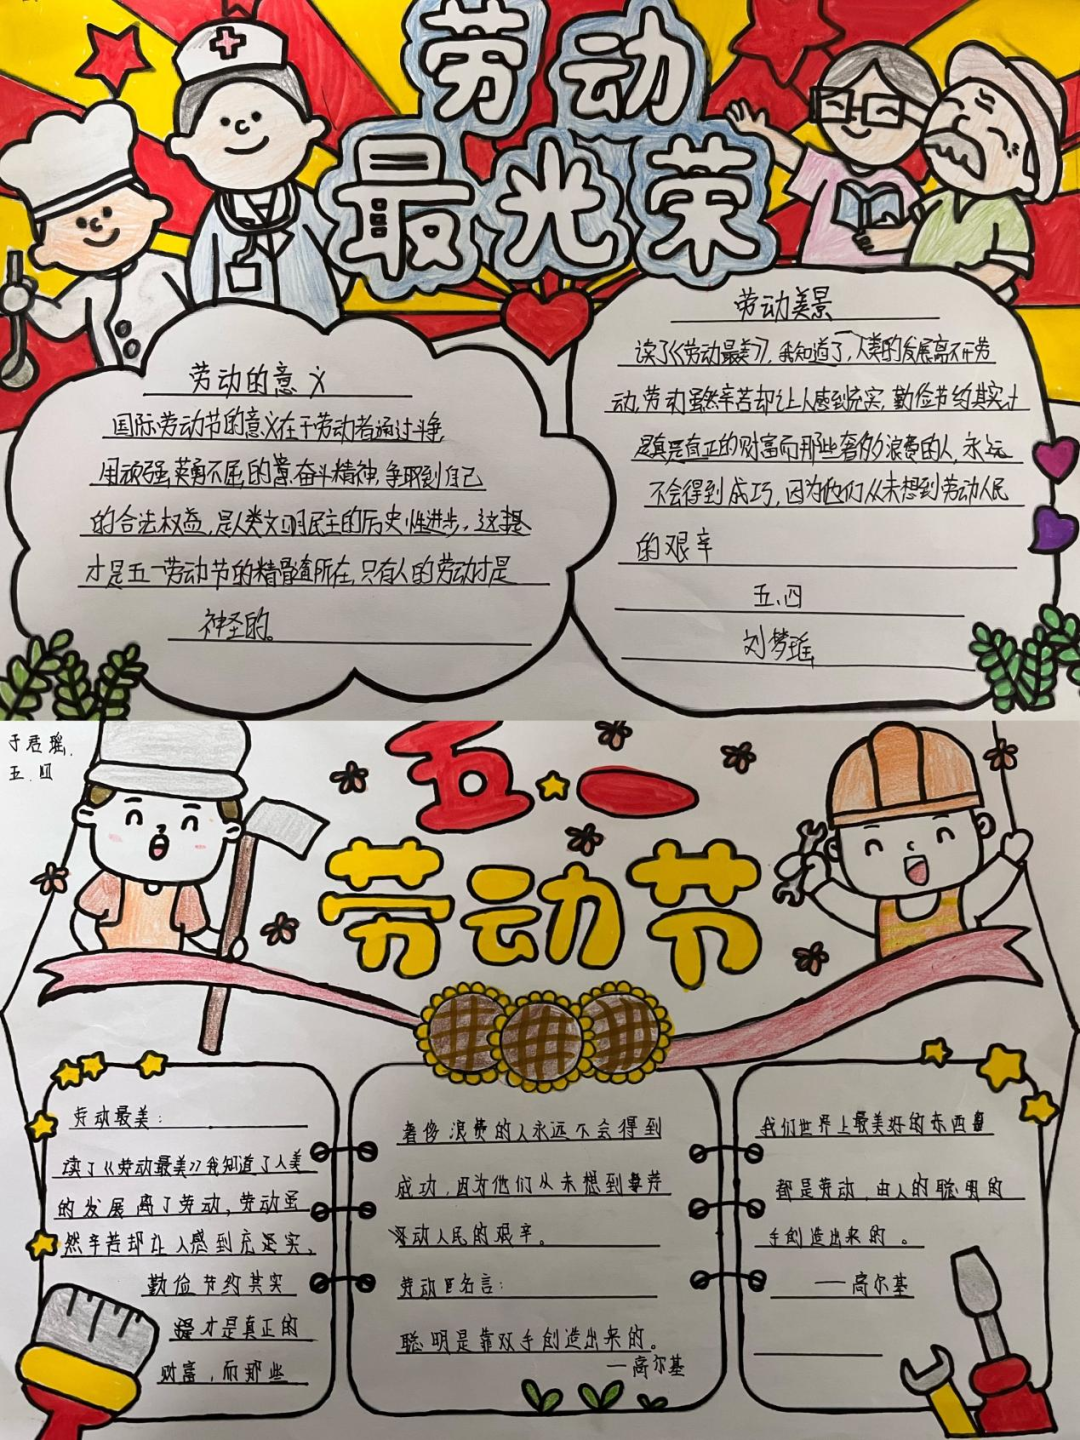 劳动
最光荣
劳动的意义
国际劳动节的意义在于劳动者通过斗争,
用顽强,英勇不屈的意奋斗精神,争取到自己
的合法权益,是人类文明民主的历史性进步,这
才是五一劳动节的精髓所在,只有人的劳动才是
神圣的。
劳动美景
读了《劳动最美》,我知道了,人美的发展离不开劳
动,劳动虽然辛苦却让人感到充实,勤俭节约其实才
是真正的财富而那些奢侈浪费的人,永远
不会得到成功,因为他们从未想到劳动人民
的艰辛
五、四
刘梦瑶
于君瑶.
五.四
五一
劳动节
劳动最美:
读了《劳动最美》我知道了人美
的发展离了劳动,劳动虽
然辛苦却让人感到充实,
勤俭节约其实
才是真正的
财富,而那些
奢侈浪费的人永远不会得到
成功,因为他们从未想到劳
动人民的艰辛。
劳动名言:
聪明是靠双手创造出来的。
—高尔基
我们世界上最美好的东西
都是劳动,由人的聪明的
手创造出来的。
——高尔基